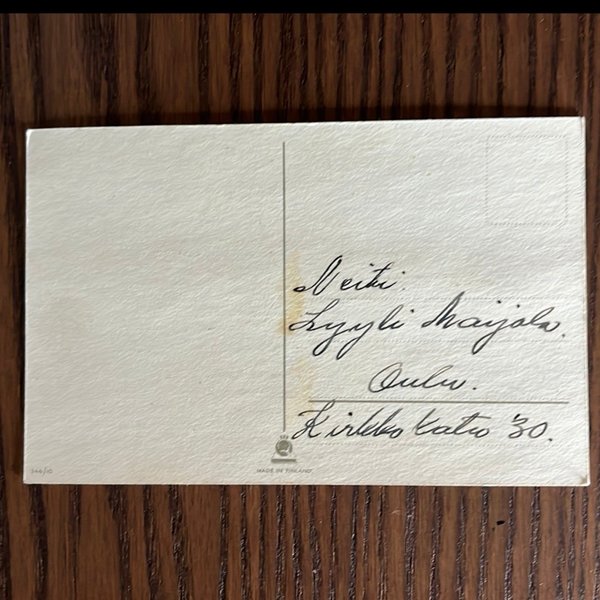 Neiti.
Lyyli Maijala.
Oulu.
Kirkkokatu 30.
546/10
MADE IN FINLAND